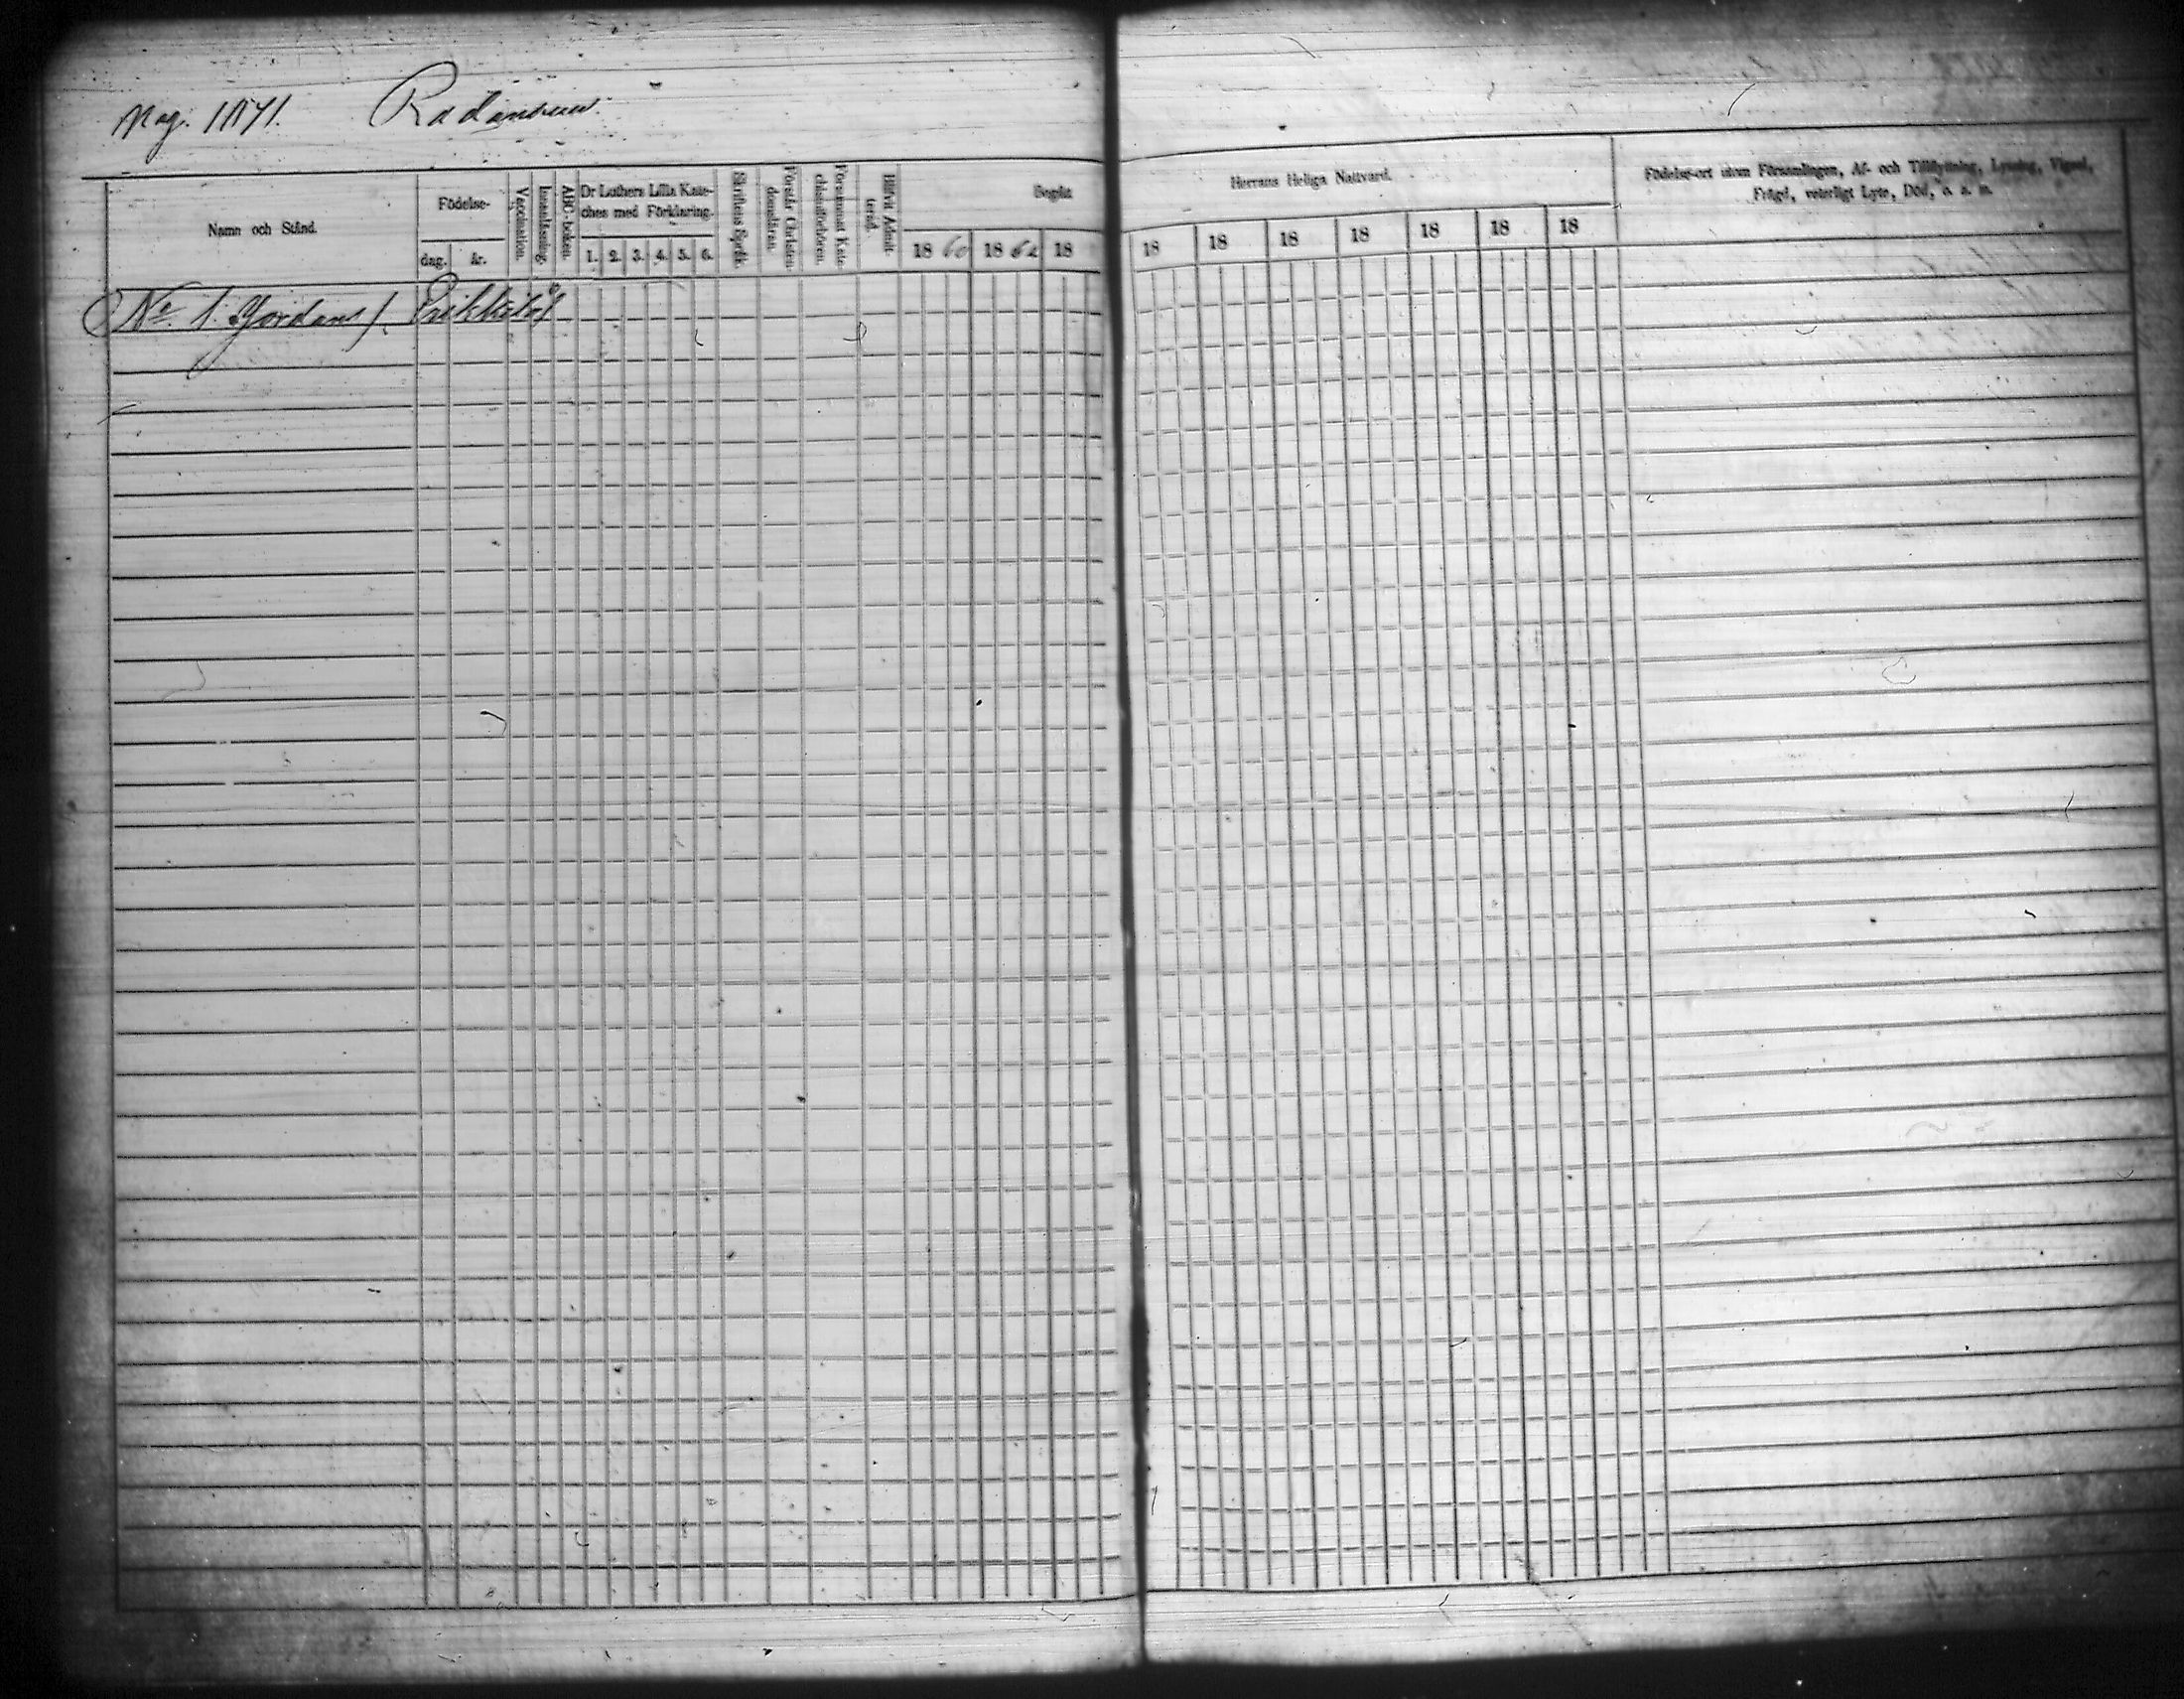 Mag. 1871. Radansuu.
Namn och Stånd.
Födelse-
dag. år.
Vaccination.
Innanläsning.
ABC-boken.
Dr Luthers Lilla Kate-
ches med Förklaring.
1. 2. 3. 4. 5. 6.
Skriftens Språk.
Förstår Christen-
domsläran.
Försummat Kate-
chismiförhören.
Blifvit Admit-
terad.
Begått
18 60 18 62 18
Herrans Heliga Nattvard.
18 18 18 18 18 18 18
Födelse-ort utom Församlingen, Af- och Tillflyttning, Lysning, Vigsel,
Frägd, veterligt Lyte, Död, o. s. m.
No 1. Gordans